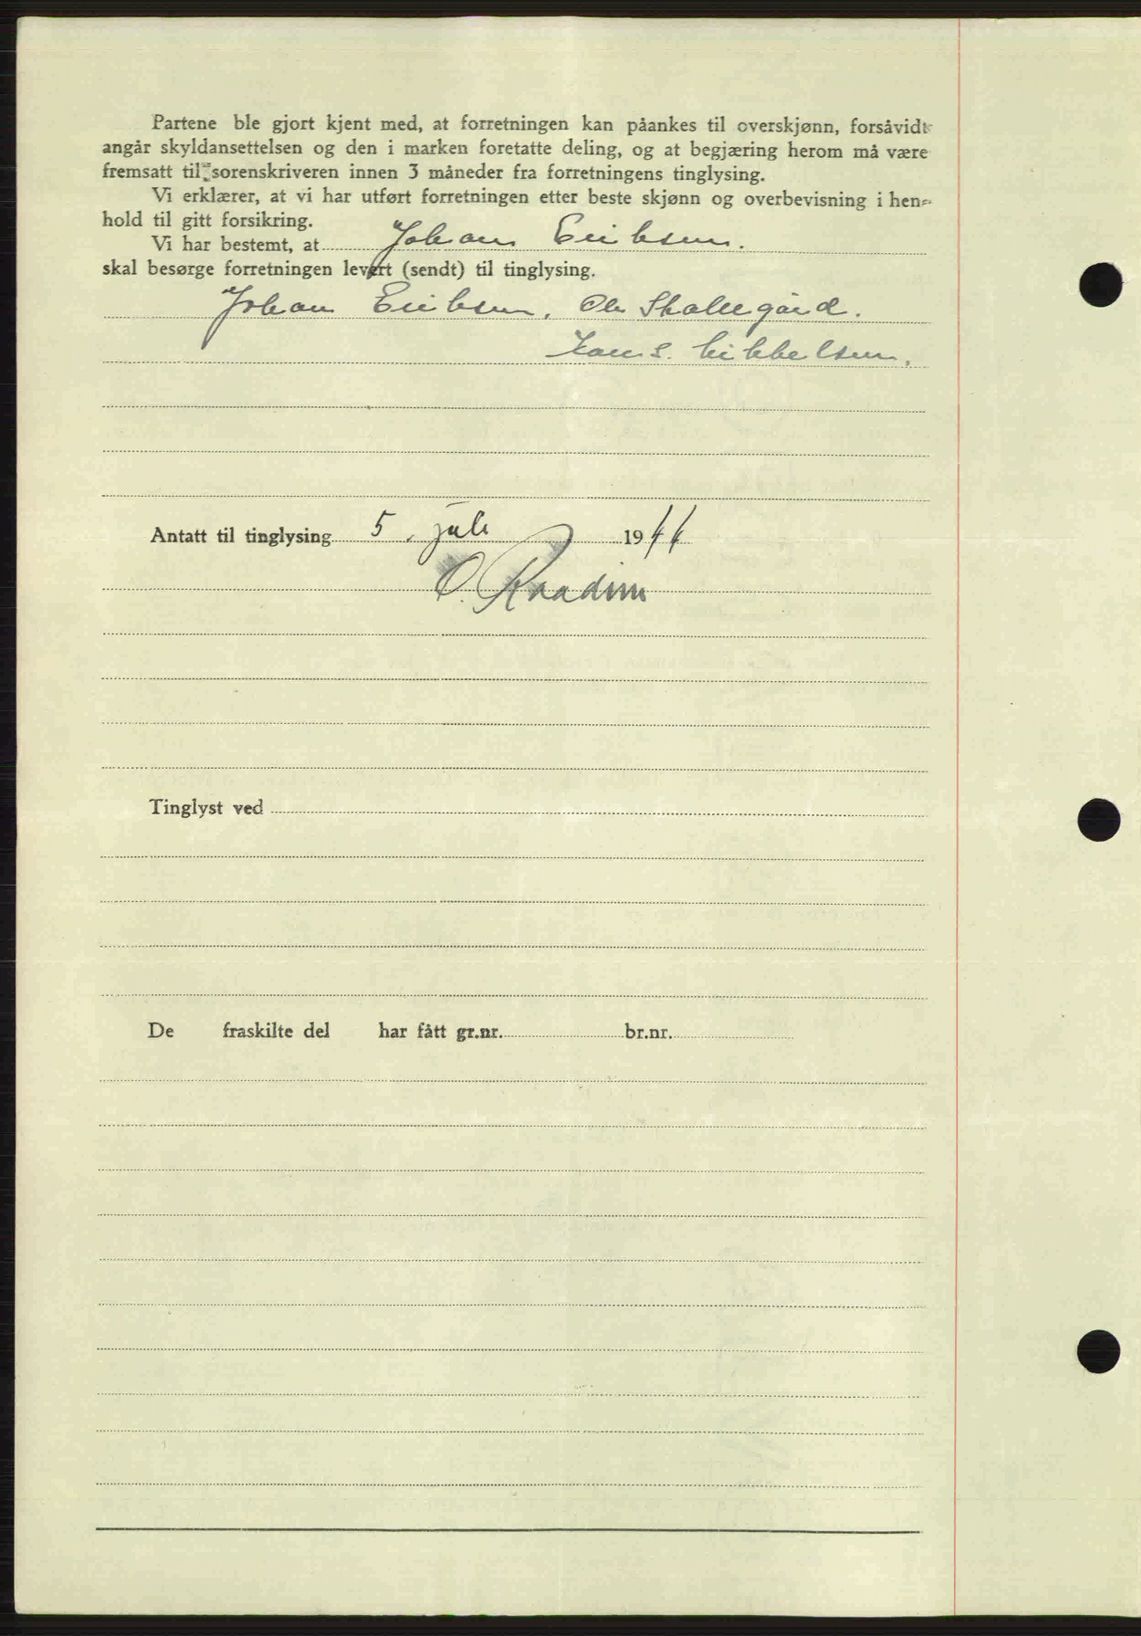 Partene ble gjort kjent med, at forretningen kan påankes til overskjønn, forsåvidt
angår skyldansettelsen og den i marken foretatte deling, og at begjæring herom må være
fremsatt til sorenskriveren innen 3 måneder fra forretningens tinglysing.
Vi erklærer, at vi har utført forretningen etter beste skjønn og overbevisning i hen-
hold til gitt forsikring.
Vi har bestemt, at Johan Eriksen.
skal besørge forretningen levert (sendt) til tinglysing.
Johan Eriksen, Ole Skallegård.
Hans. Mikkelsen.
Antatt til tinglysing 5. juli 1944
O. Raadim
Tinglyst ved
De fraskilte del har fått gr.nr. br.nr.